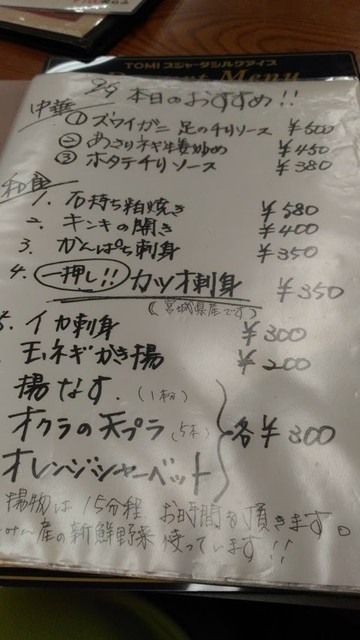 TOMI スジャータシルクアイス
Menu
9/9 本日のおすすめ!!
中華
① ズワイガニ 足のチリソース ¥600
② あさりネギ生姜炒め ¥450
③ ホタテチリソース ¥380
和食
1. 石持ち粕焼き ¥580
2. キンキの開き ¥400
3. かんぱち刺身 ¥350
4. 一押し!! カツオ刺身 ¥350
(宮城県産です)
5. イカ刺身 ¥300
玉ネギかき揚 ¥200
揚なす.(1本)
オクラの天プラ(5本) 各¥300
オレンジシャーベット
揚物は15分程 お時間を頂きます。
産の新鮮野菜 使っています!!